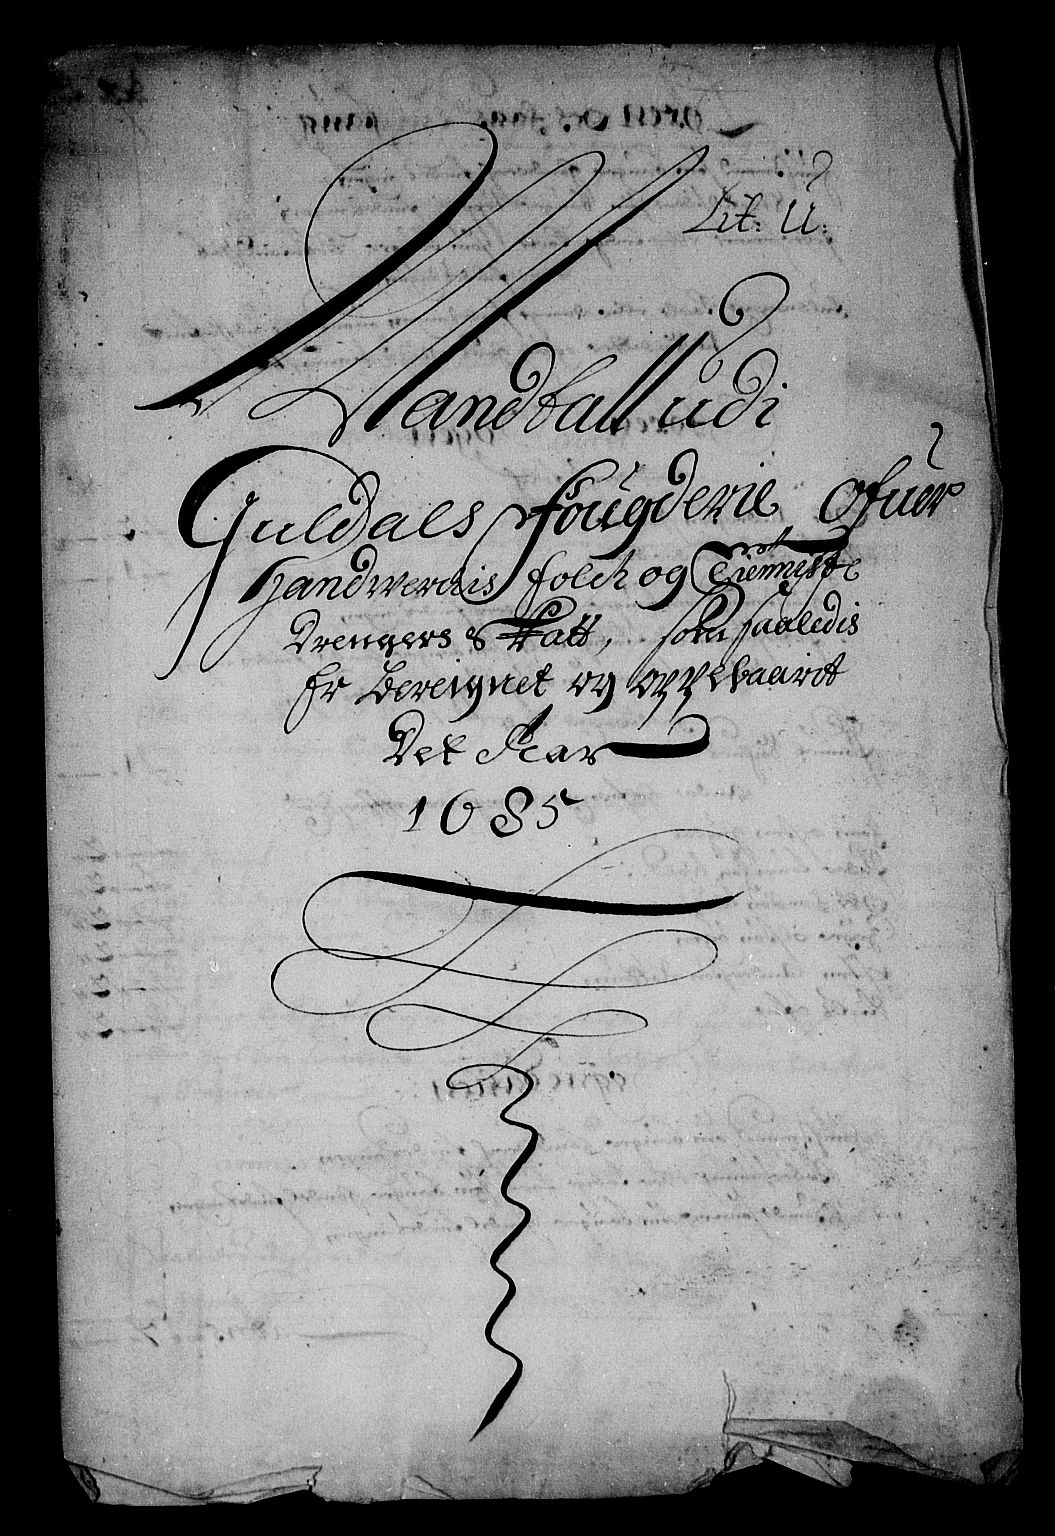 Lit: U:
Mandtall udi
Guldals fougderie ofuer
Handwerchs folch og Tienniste
Drengers Skatt, som saaledis
Er Bereignet og oppebaarit
Det Aar
1685